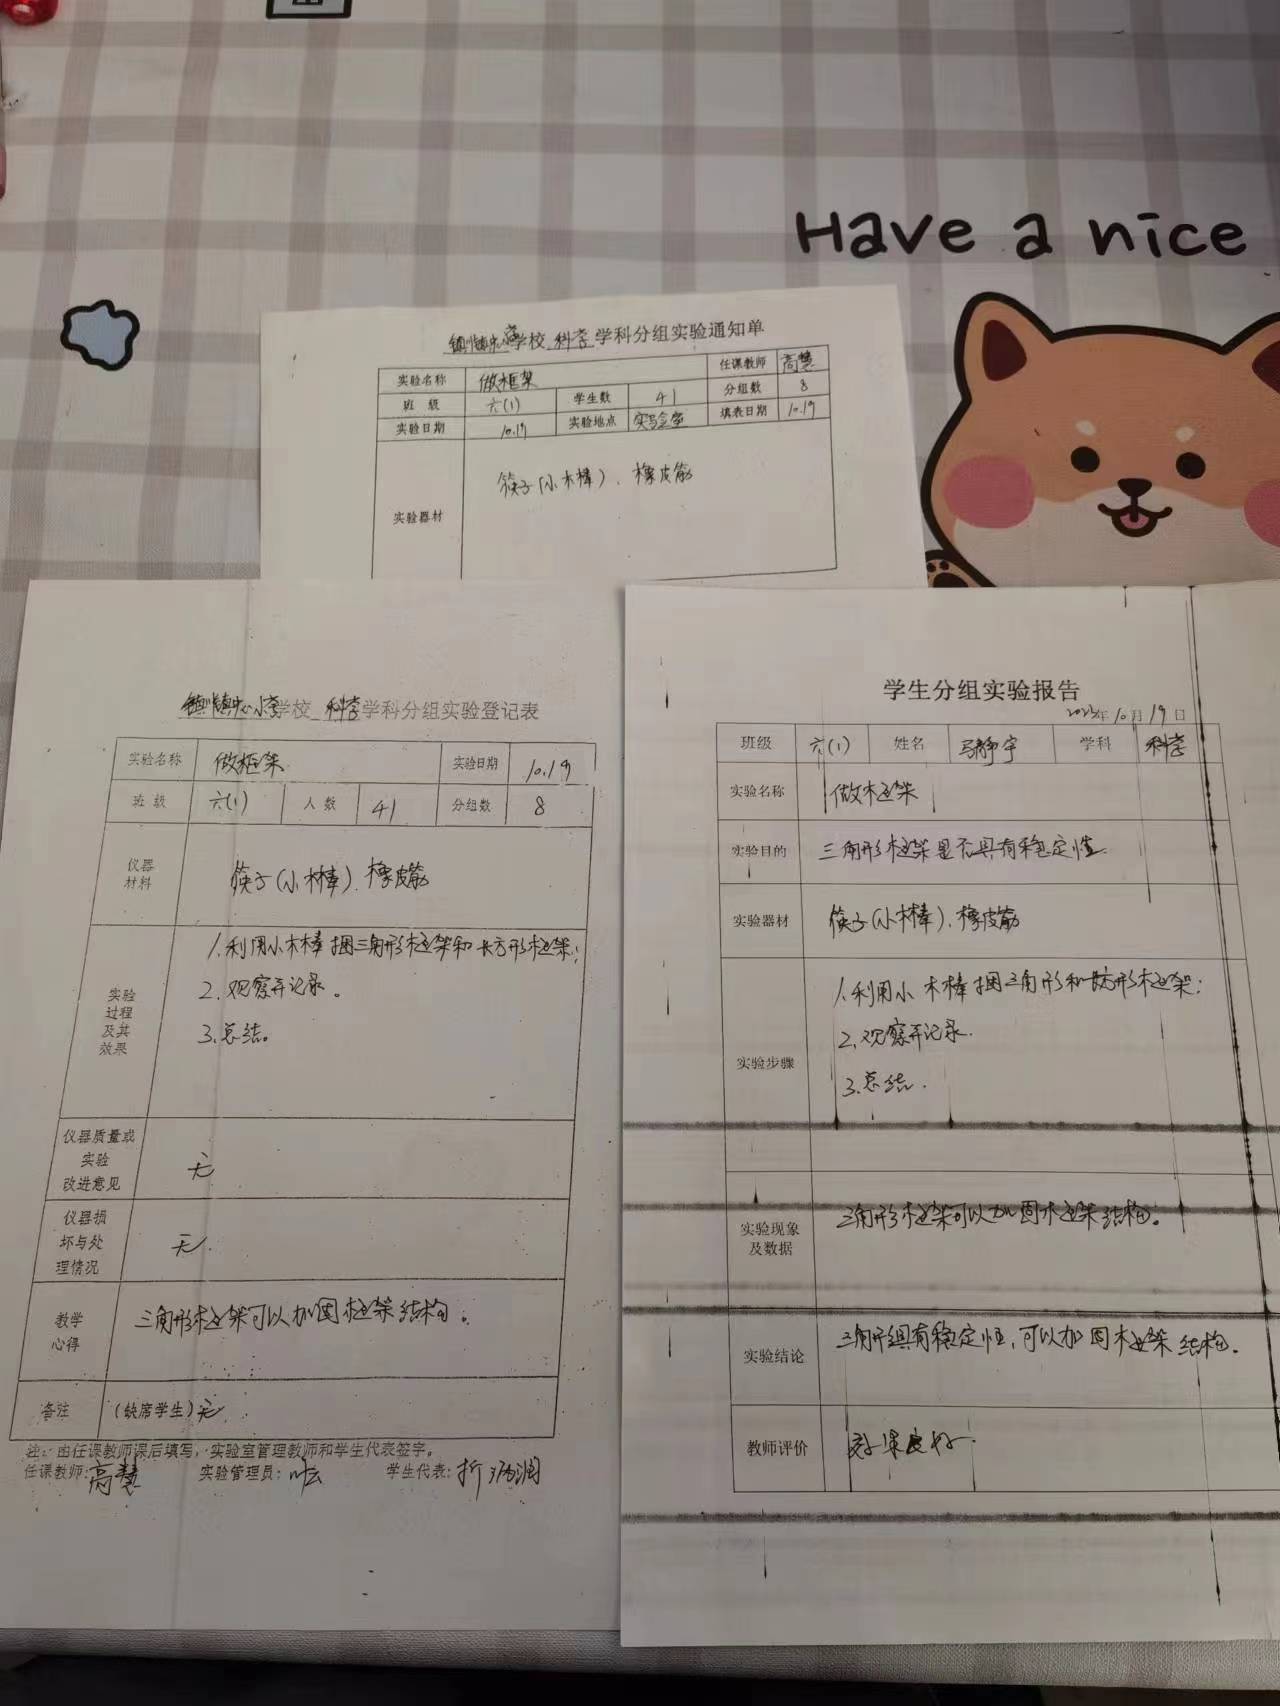 Have a nice
镇川镇中心小学校 科学 学科分组实验通知单
实验名称 做框架 任课教师 高慧
班 级 六(1) 学生数 41 分组数 8
实验日期 10.19 实验地点 实验室 填表日期 10.19
实验器材 筷子(小木棒)、橡皮筋
镇川镇中心小学学校 科学 学科分组实验登记表
实验名称 做框架 实验日期 10.19
班 级 六(1) 人 数 41 分组数 8
仪器
材料
筷子(小木棒)、橡皮筋
实验
过程
及其
效果
1.利用小木棒捆三角形框架和长方形框架;
2.观察并记录。
3.总结。
仪器质量或
实验
改进意见
无
仪器损
坏与处
理情况
无.
教学
心得
三角形框架可以加固框架结构。
备注 (缺席学生)无
注:由任课教师课后填写,实验室管理教师和学生代表签字。
任课教师:高慧 实验管理员: 学生代表:折
学生分组实验报告
2023年10月19日
班级 六(1) 姓名 马静宇 学科 科学
实验名称 做框架
实验目的 三角形框架是否具有稳定性
实验器材 筷子(小木棒)、橡皮筋
实验步骤
1.利用小木棒捆三角形和长方形框架;
2.观察并记录.
3.总结.
实验现象
及数据
三角形框架可以加固框架结构。
实验结论 三角形具有稳定性,可以加固框架结构。
教师评价 效果良好.